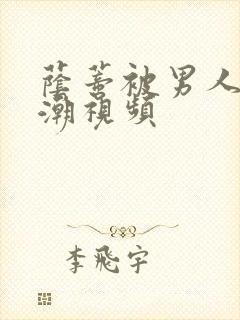 蔭蒂被男人
潮視頻
李飛宇